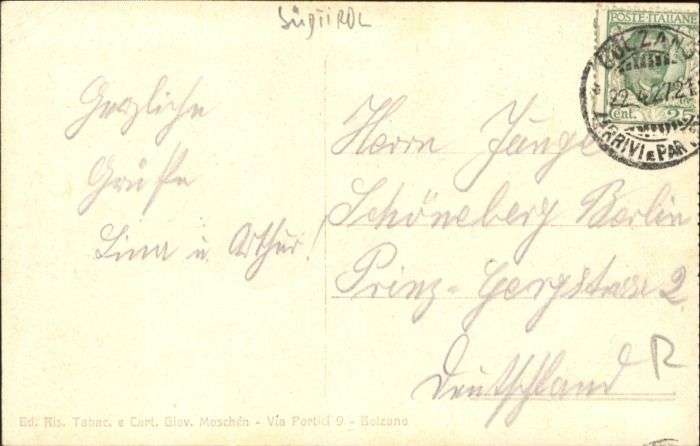 SÜDTIROL
POSTE ITALIANE
BOLZANO
22.4.27.21
ARRIVI E PAR
cent. 25
Herzliche
Grüße
Lina u. Arthur!
Herrn Junge
Schöneberg Berlin
Prinz-Georgstrasse 2
Deutschland
R
Ed. Ris. Tabac. e Cart. Giov. Moschén - Via Portici 9 - Bolzano